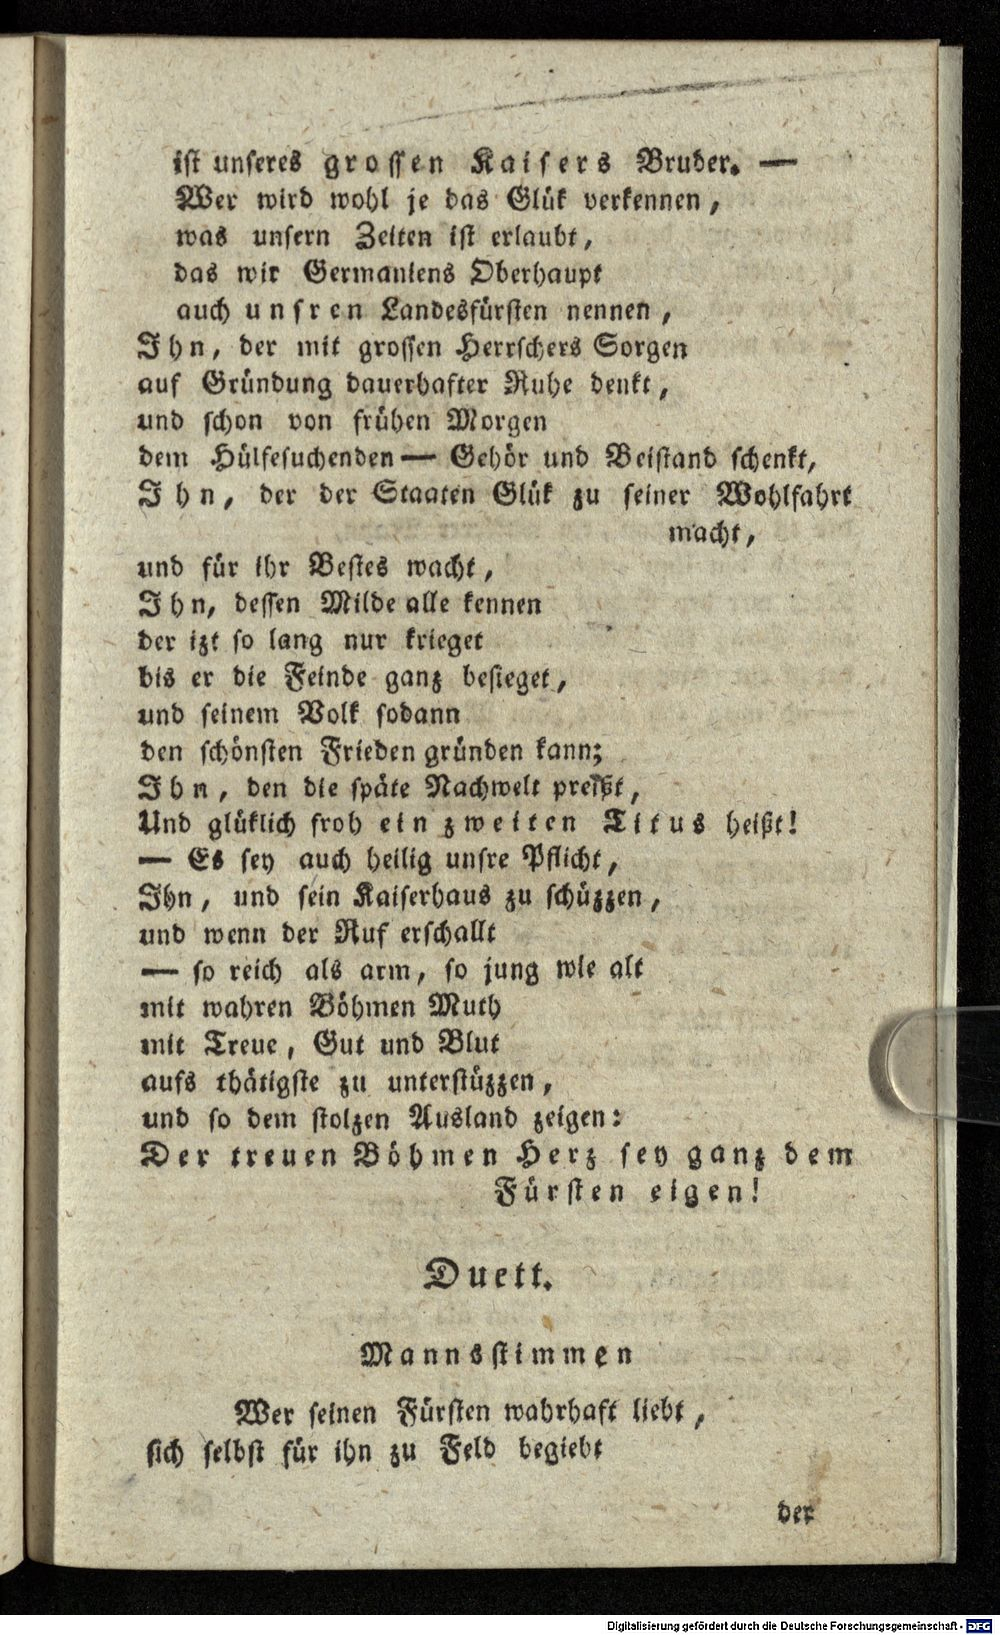 ist unseres grossen Kaisers Bruder. —
Wer wird wohl je das Glük verkennen,
was unsern Zeiten ist erlaubt,
das wir Germaniens Oberhaupt
auch unsren Landesfürsten nennen,
Ihn, der mit grossen Herrschers Sorgen
auf Gründung dauerhafter Ruhe denkt,
und schon von frühen Morgen
dem Hülfesuchenden — Gehör und Beistand schenkt,
Ihn, der der Staaten Glük zu seiner Wohlfahrt
macht,
und für ihr Bestes wacht,
Ihn, dessen Milde alle kennen
der izt so lang nur krieget
bis er die Feinde ganz besieget,
und seinem Volk sodann
den schönsten Frieden gründen kann;
Ihn, den die späte Nachwelt preißt,
Und glüklich froh ein zweiten Titus heißt!
— Es sey auch heilig unsre Pflicht,
Ihn, und sein Kaiserhaus zu schüzzen,
und wenn der Ruf erschallt
— so reich als arm, so jung wie alt
mit wahren Böhmen Muth
mit Treue, Gut und Blut
aufs thätigste zu unterstüzzen,
und so dem stolzen Ausland zeigen:
Der treuen Böhmen Herz sey ganz dem
Fürsten eigen!
Duett.
Mannsstimmen
Wer seinen Fürsten wahrhaft liebt,
sich selbst für ihn zu Feld begiebt
der
Digitalisierung gefördert durch die Deutsche Forschungsgemeinschaft - DFG